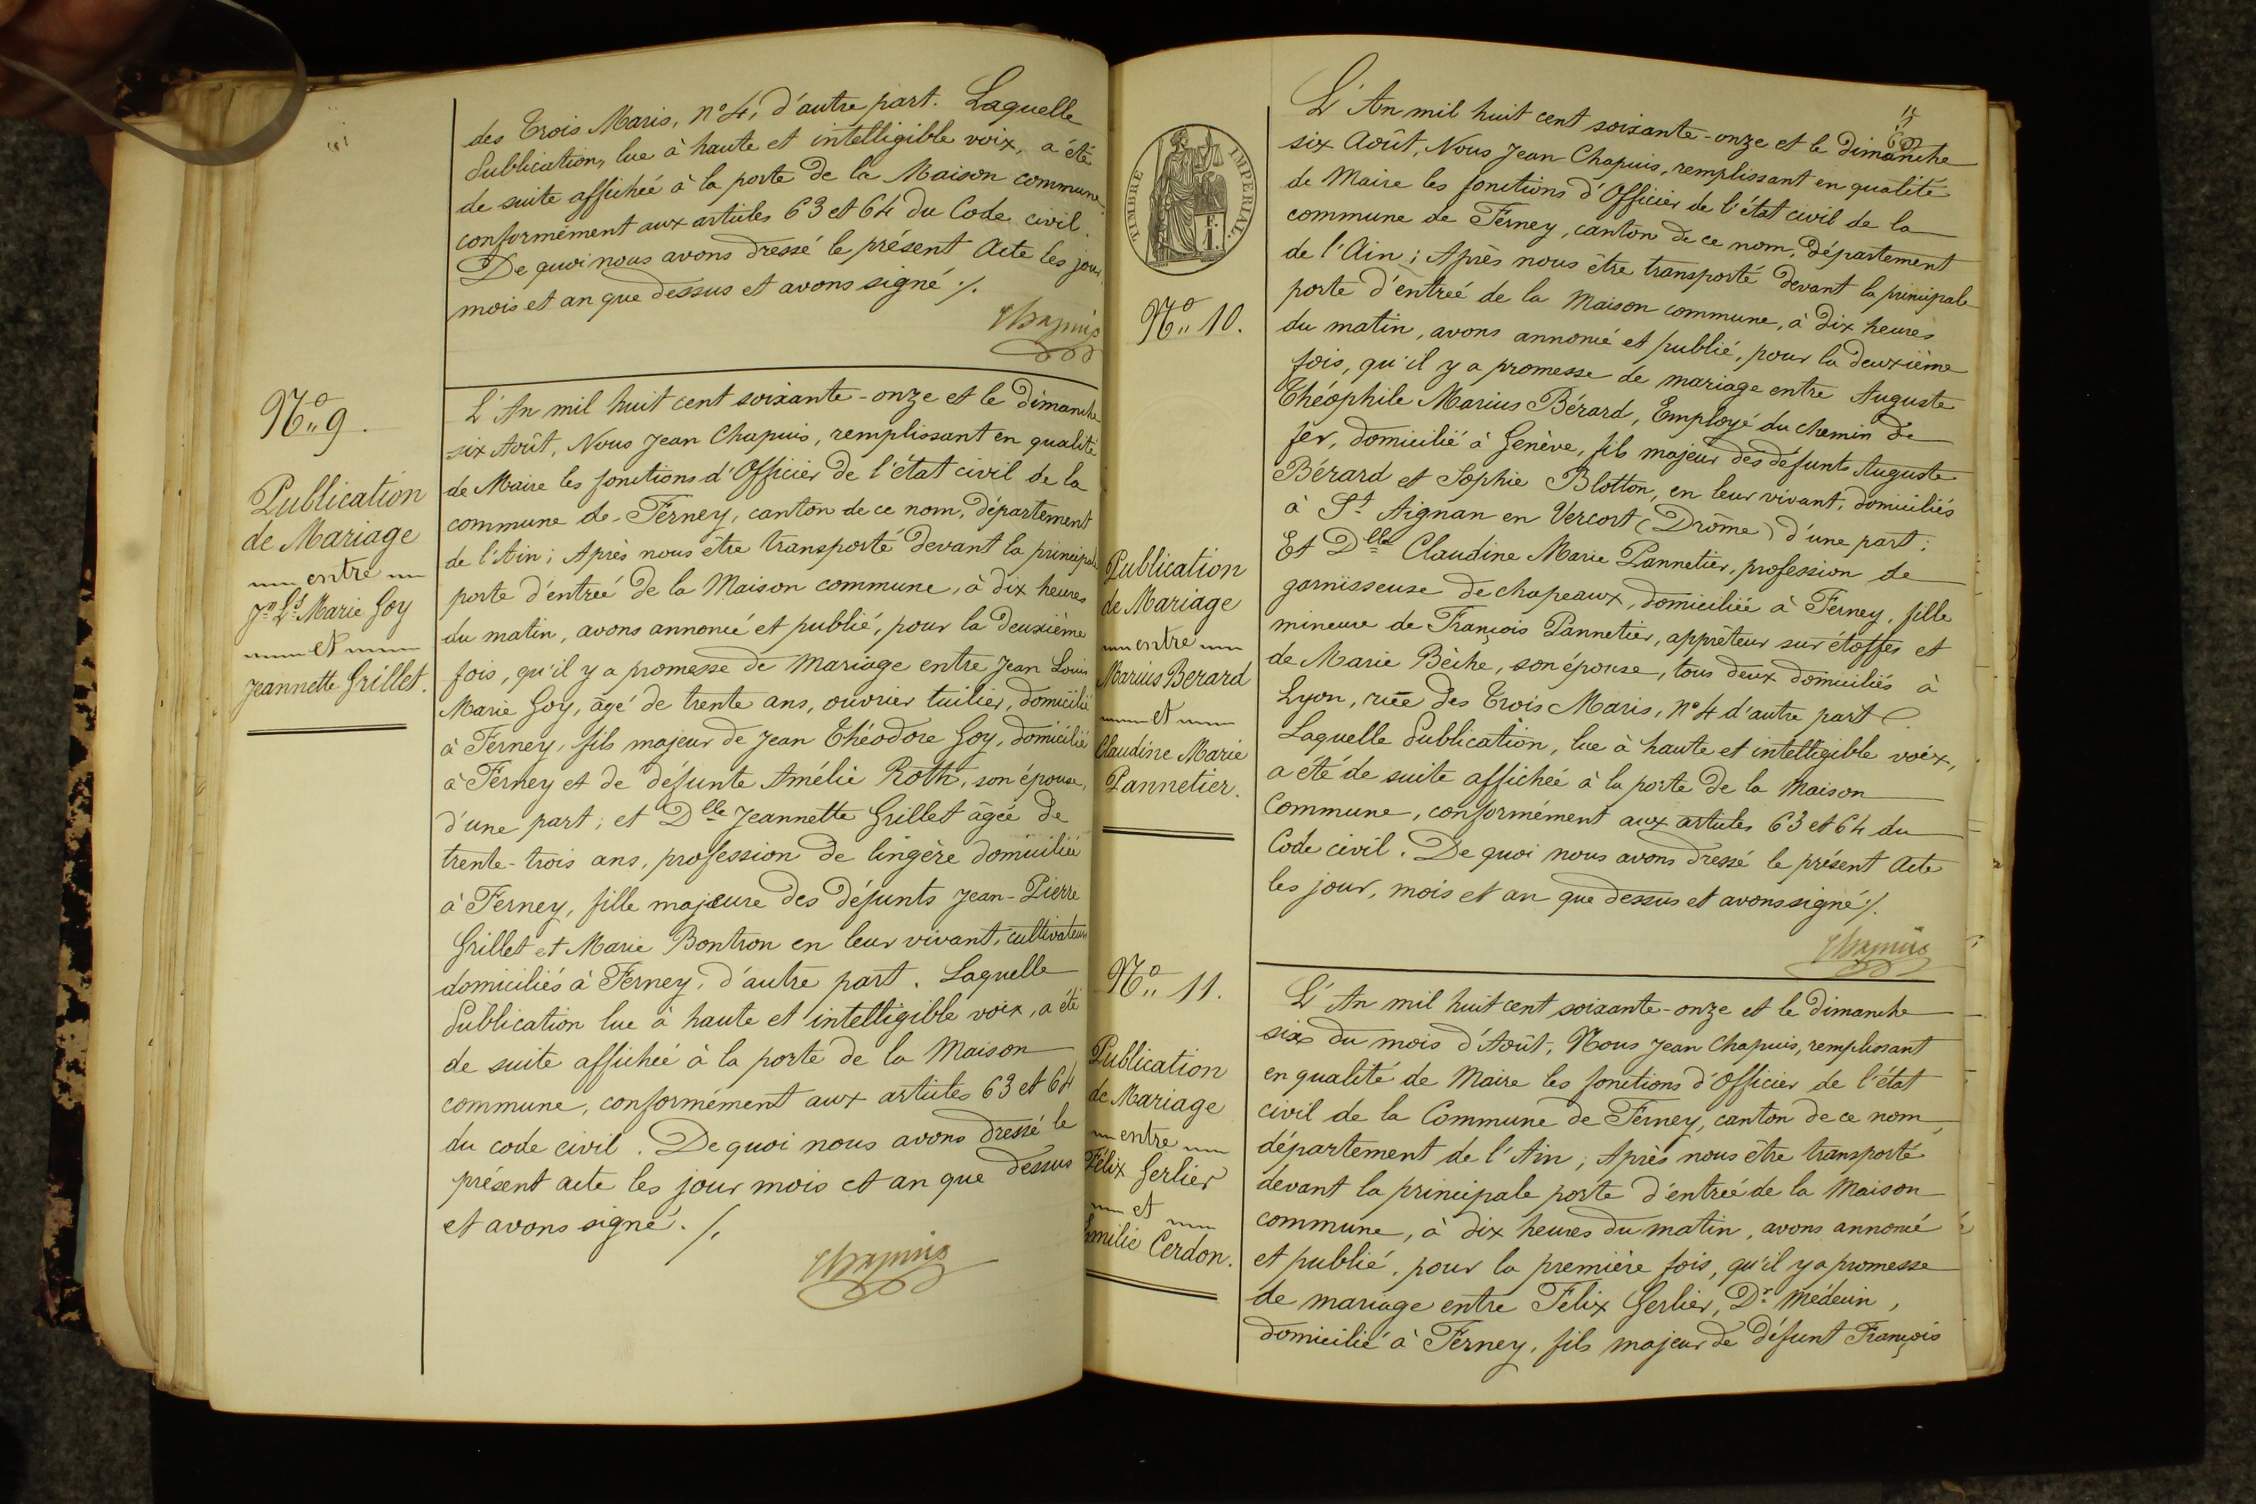 des Trois Maris, n° 4, d'autre part. Laquelle
Publication, lue à haute et intelligible voix, a été
de suite affichée à la porte de la Maison commune
conformément aux articles 63 et 64 du Code civil.
De quoi nous avons dressé le présent Acte les jour,
mois et an que dessus et avons signé ./.
Chapuis
N° 9.
Publication
de Mariage
entre
Jn Ls Marie Goy
et
Jeannette Grillet.
L'An mil huit cent soixante-onze et le dimanche
six Août, Nous Jean Chapuis, remplissant en qualité
de Maire les fonctions d'Officier de l'état civil de la
commune de Ferney, canton de ce nom, département
de l'Ain; Après nous être transporté devant la principale
porte d'entrée de la Maison commune, à dix heures
du matin, avons annoncé et publié, pour la deuxième
fois, qu'il y a promesse de mariage entre Jean Louis
Marie Goy, âgé de trente ans, ouvrier tuilier, domicilié
à Ferney, fils majeur de Jean Théodore Goy, domicilié
à Ferney et de défunte Amélie Roth, son épouse,
d'une part; et Dlle Jeannette Grillet âgée de
trente-trois ans, profession de lingère domiciliée
à Ferney, fille majeure des défunts Jean-Pierre
Grillet et Marie Bontron en leur vivant, cultivateurs
domiciliés à Ferney, d'autre part. Laquelle
Publication lue à haute et intelligible voix, a été
de suite affichée à la porte de la Maison
commune, conformément aux articles 63 et 64
du code civil. De quoi nous avons dressé le
présent acte les jour mois et an que dessus
et avons signé. /.
Chapuis
TIMBRE IMPERIAL.
1F.
N° 10.
Publication
de Mariage
entre
Marius Berard
et
Claudine Marie
Pannetier.
L'An mil huit cent soixante-onze et le dimanche
six Août, Nous Jean Chapuis, remplissant en qualité
de Maire les fonctions d'Officier de l'état civil de la
commune de Ferney, canton de ce nom, département
de l'Ain; Après nous être transporté devant la principale
porte d'entrée de la Maison commune, à dix heures
du matin, avons annoncé et publié, pour la deuxième
fois, qu'il y a promesse de mariage entre Auguste
Théophile Marius Bérard, Employé du chemin de
fer, domicilié à Genève, fils majeur des défunts Auguste
Bérard et Sophie Blotton, en leur vivant, domiciliés
à St Aignan en Vercort (Drôme) d'une part:
Et Dlle Claudine Marie Pannetier, profession de
garnisseuse de chapeaux, domiciliée à Ferney, fille
mineure de François Pannetier, apprêteur sur étoffes et
de Marie Bèche, son épouse, tous deux domiciliés à
Lyon, rue des Trois Maris, n° 4 d'autre part.
Laquelle Publication, lue à haute et intelligible voix,
a été de suite affichée à la porte de la Maison
Commune, conformément aux articles 63 et 64 du
Code civil. De quoi nous avons dressé le présent Acte
les jour, mois et an que dessus et avons signé ./.
Chapuis
N° 11.
Publication
de Mariage
entre
Félix Gerlier
et
Emilie Cerdon.
L'An mil huit cent soixante-onze et le dimanche
six du mois d'Août, Nous Jean Chapuis, remplissant
en qualité de Maire les fonctions d'Officier de l'état
civil de la Commune de Ferney, canton de ce nom,
département de l'Ain; Après nous être transporté
devant la principale porte d'entrée de la Maison
commune, à dix heures du matin, avons annoncé
et publié, pour la première fois, qu'il y a promesse
de mariage entre Félix Gerlier, Dr médecin,
domicilié à Ferney, fils majeur de défunt François